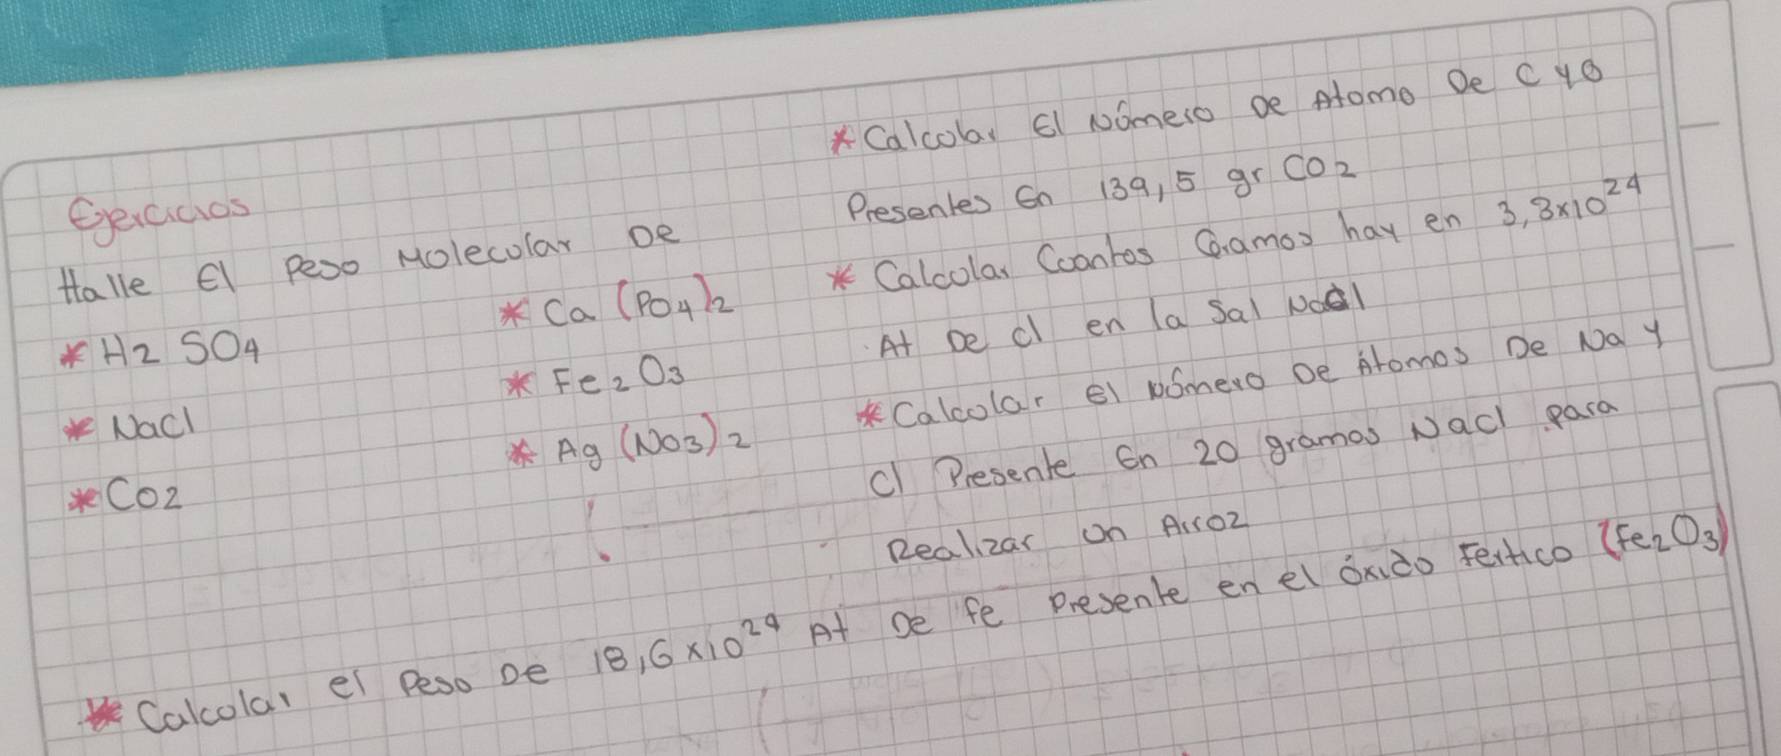 Ejercicios
Halle El Peso Molecolar De
* H2 SO4
* NaCl
* CO2
* Ca (PO4)2
* Fe2O3
* Ag (NO3)2
* Calcolar El Nómero De Atomo De C y O
Presentes En 139,5 gr CO2
* Calcolar Coantos Gramos hay en 3,3x10^24
At De cl en la Sal Nacl
* Calcolar el Nómero De Átomos De Na y
Cl Presente En 20 gramos Nacl para
Realizar On Arroz
* Calcolar el Peso De 18,6x10^24 At De fe presente en el óxido Ferrico (Fe2O3)